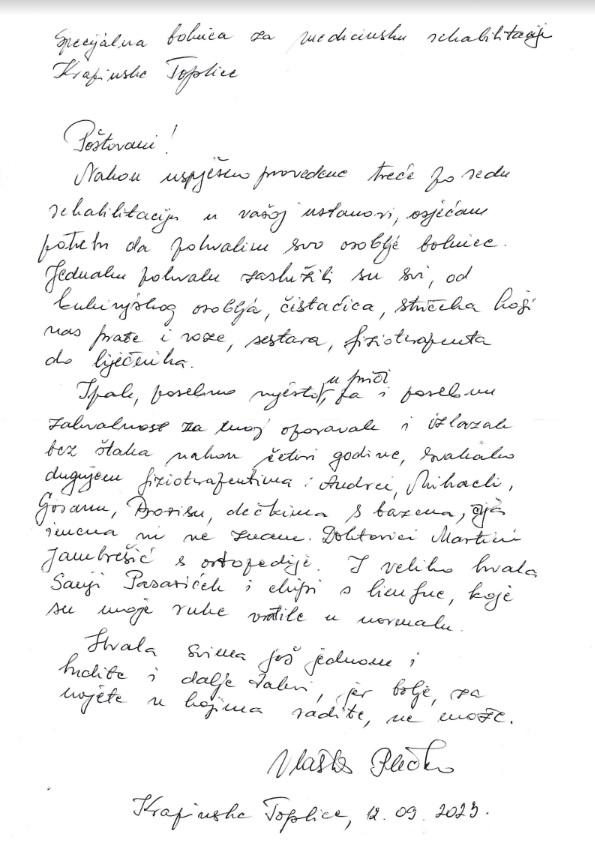 Specijalna bolnica za medicinsku rehabilitaciju
Krapinske Toplice
Poštovani!
Nakon uspješno provedene treće po redu
rehabilitacije u vašoj ustanovi, osjećam
potrebu da pohvalim svo osoblje bolnice.
Jednaku pohvalu zaslužili su svi, od
kuhinjskog osoblja, čistačica, stričeka koji
nas prate i voze, sestara, fizioterapeuta
do liječnika.
Ipak, posebno mjesto, u priči pa i posebnu
zahvalnost za moj oporavak i izlazak
bez štaka nakon četiri godine, svakako
dugujem fizioterapeutima: Andrei, Mihaeli,
Goranu, Borisu, dečkima s bazena, čija
imena ni ne znam. Doktorici Martini
Jambrešić s ortopedije. I veliko hvala
Sanji Pasariček i ekipi s limfne, koje
su moje ruke vratile u normalu.
Hvala svima još jednom i
budite i dalje takvi, jer bolje, za
uvjete u kojima radite, ne može.
Krapinske Toplice, 12.09.2023.